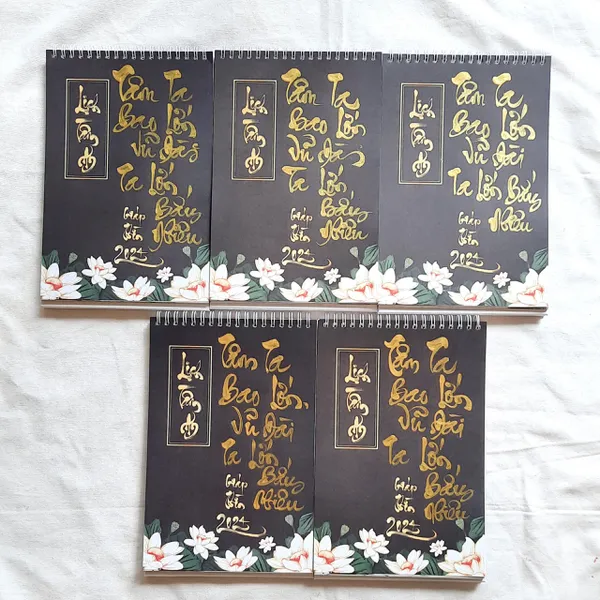 Lịch
Tâm
Tâm Ta
Bao Lớn
Vũ Đài
Ta Lớn
Bấy
Nhiêu
Giáp
Thìn
2024
Lịch
Tâm
Tâm Ta
Bao Lớn
Vũ Đài
Ta Lớn
Bấy
Nhiêu
Giáp
Thìn
2024
Lịch
Tâm
Tâm Ta
Bao Lớn
Vũ Đài
Ta Lớn Bấy
Nhiêu
Giáp
Thìn
2024
Lịch
Tâm
Tâm Ta
Bao Lớn,
Vũ Đài
Ta Lớn
Bấy
Nhiêu
Giáp
Thìn
2024
Lịch
Tâm
Tâm Ta
Bao Lớn
Vũ Đài
Ta Lớn
Bấy
Nhiêu
Giáp
Thìn
2024